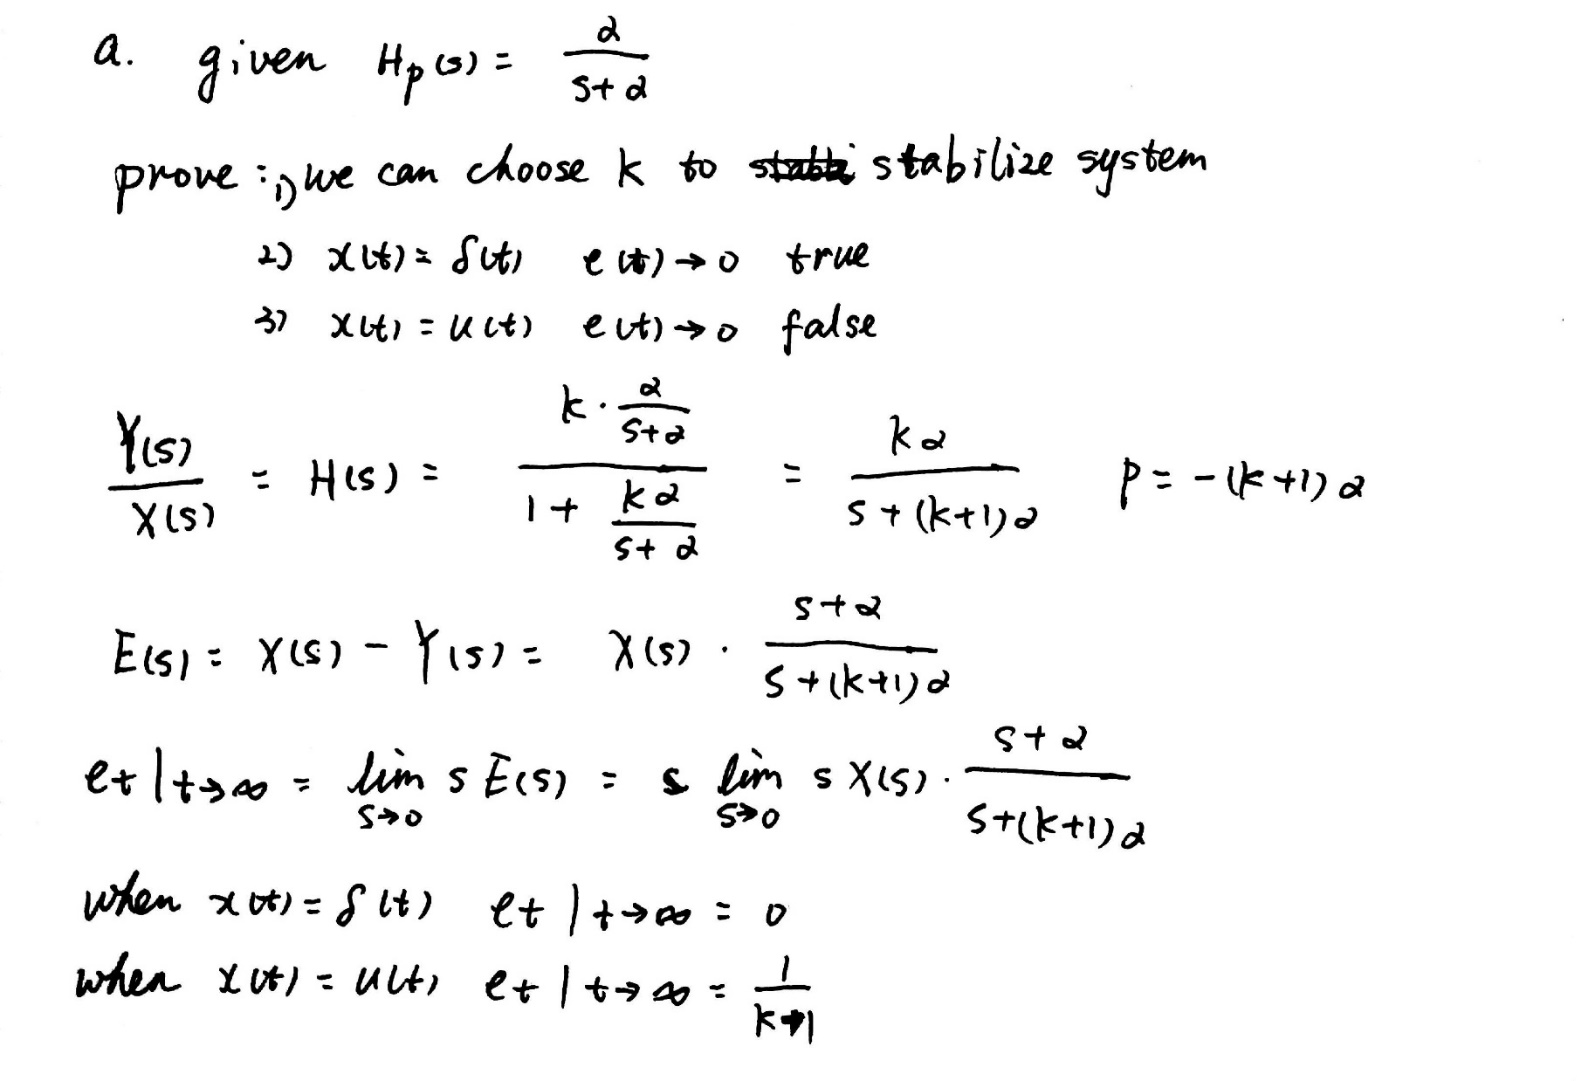 a. given Hp(s) = α / (s+α)
prove: 1) we can choose k to stabilize system
2) x(t) = δ(t) e(t) → 0 true
3) x(t) = u(t) e(t) → 0 false
Y(s)/X(s) = H(s) = (k · α/(s+α)) / (1 + kα/(s+α)) = kα / (s+(k+1)α) P = -(k+1)α
E(s) = X(s) - Y(s) = X(s) · (s+α) / (s+(k+1)α)
et|t→∞ = lim s→0 s E(s) = lim s→0 s X(s) · (s+α) / (s+(k+1)α)
when x(t) = δ(t) et|t→∞ = 0
when x(t) = u(t) et|t→∞ = 1 / (k+1)